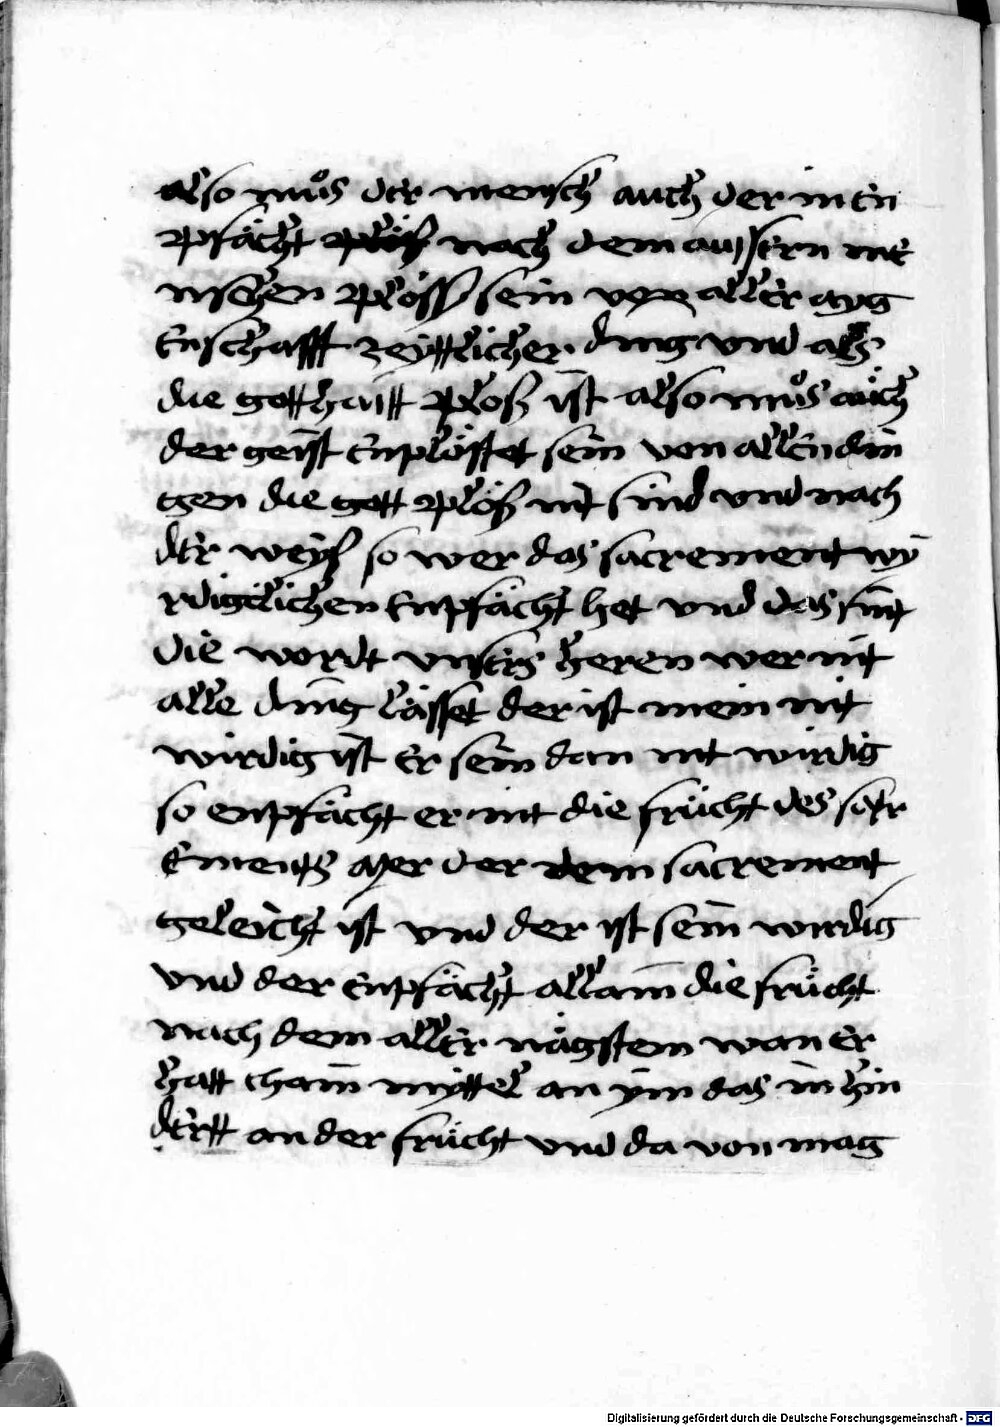 also můs der mensch auch der in en
pfächt plös nach dem aussern me
nschen plöss sein von aller ayg
enschafft zeyttlicher ding vnd als
die gotthaitt plos ist also můs aůch
der geist enplöstet sein von allen din
gen die gott plös nit sind vnd nach
der weys so wer das sacrement wy
rdigclichen enpfächt het vnd das sint
die wordt vnsers heren wer nit
alle ding lässet der ist mein nit
wirdig ist er sein dan nit wirdig
so enpfächt er nit die frücht des sacr
ements aber der dem sacrement
geleicht ist vnd der ist sein wirdig
vnd der enpfächt allain die frücht
nach dem aller nägsten wan er
hatt chain myttel an ym das in hin
dertt an der frücht vnd da von mag
Digitalisierung gefördert durch die Deutsche Forschungsgemeinschaft - DFG